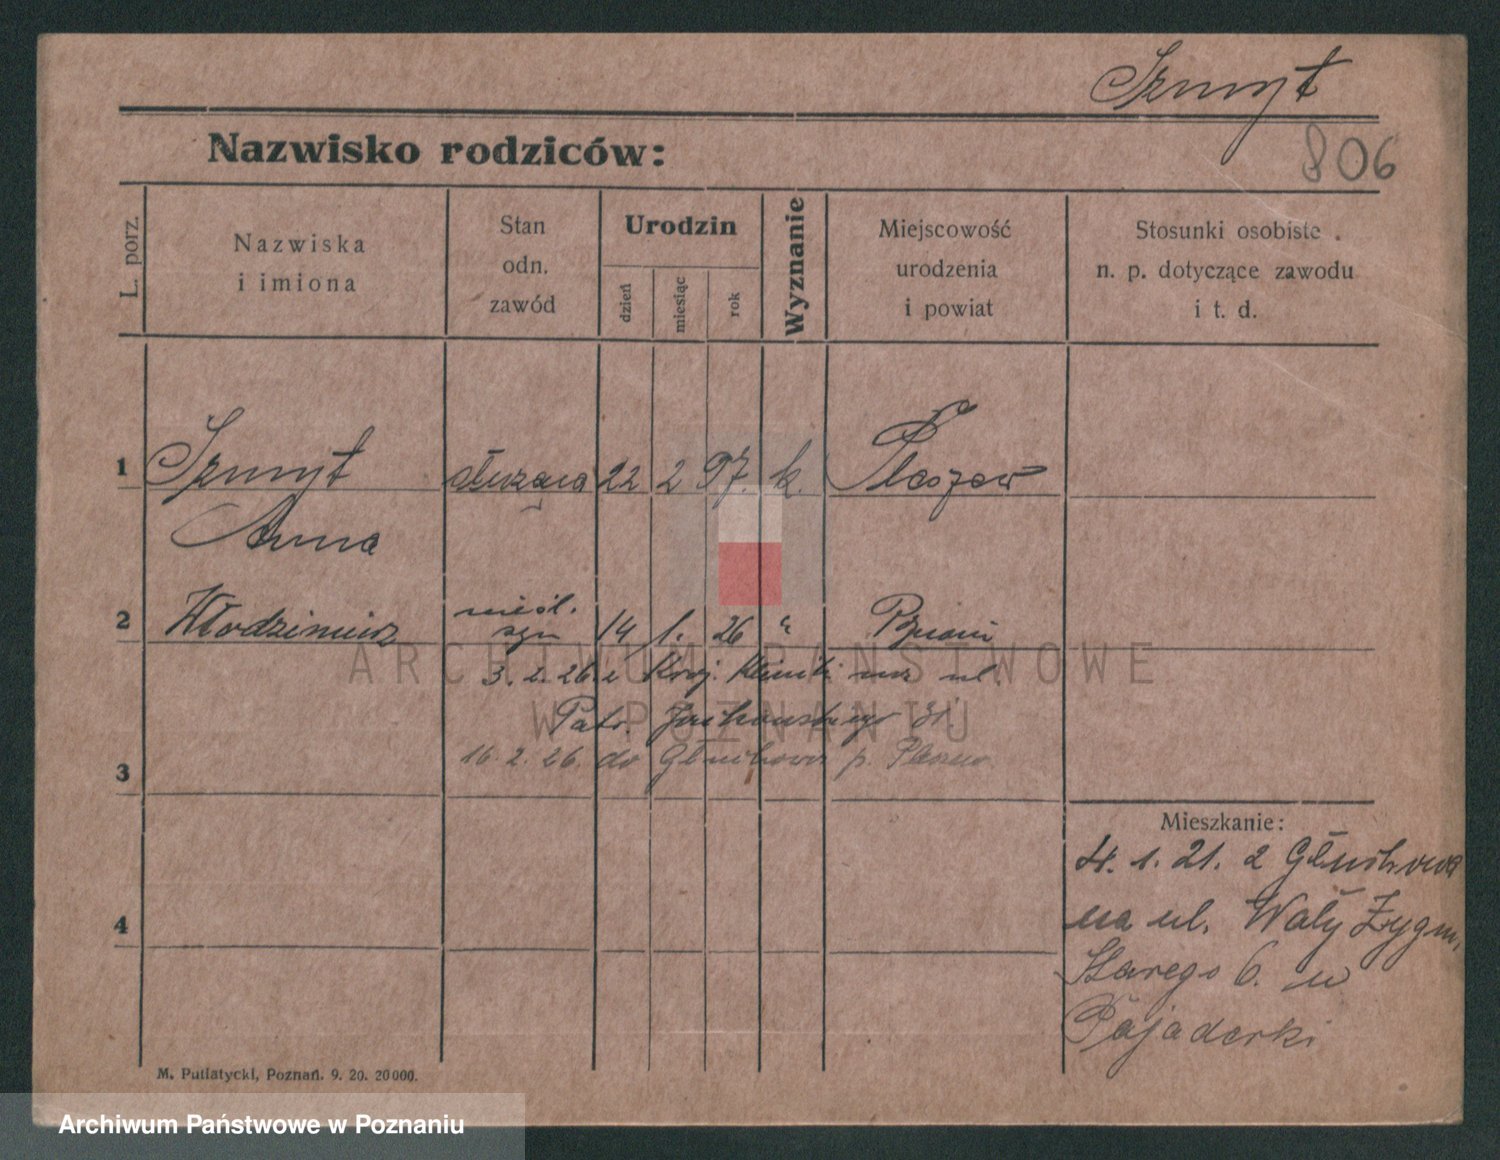 Szmyt
806
Nazwisko rodziców:
L. porz.
Nazwiska
i imiona
Stan
odn.
zawód
Urodzin
dzień
miesiąc
rok
Wyznanie
Miejscowość
urodzenia
i powiat
Stosunki osobiste
n. p. dotyczące zawodu
i t. d.
1 Szmyt służąca 22 2 97. k. Pleszew
Anna
nieśl.
2 Włodzimierz syn 14 1. 26 "
3. 2. 26 z Kraj. Kliniki na ul.
Patr. Jackowskiego 31.
3 16. 2. 26 do p.
Mieszkanie:
4. 1. 21. z
na ul. Wały Zygm.
4
Starego 6. u
Pajaderki
M. Putiatycki, Poznań. 9. 20. 20000.
ARCHIWUM PAŃSTWOWE
W POZNANIU
Archiwum Państwowe w Poznaniu